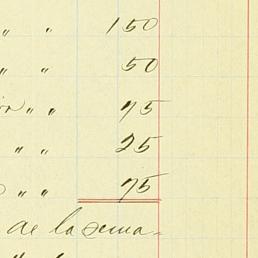 " " 150
" " 50
" " 75
" " 25
" " 75
de la sema-